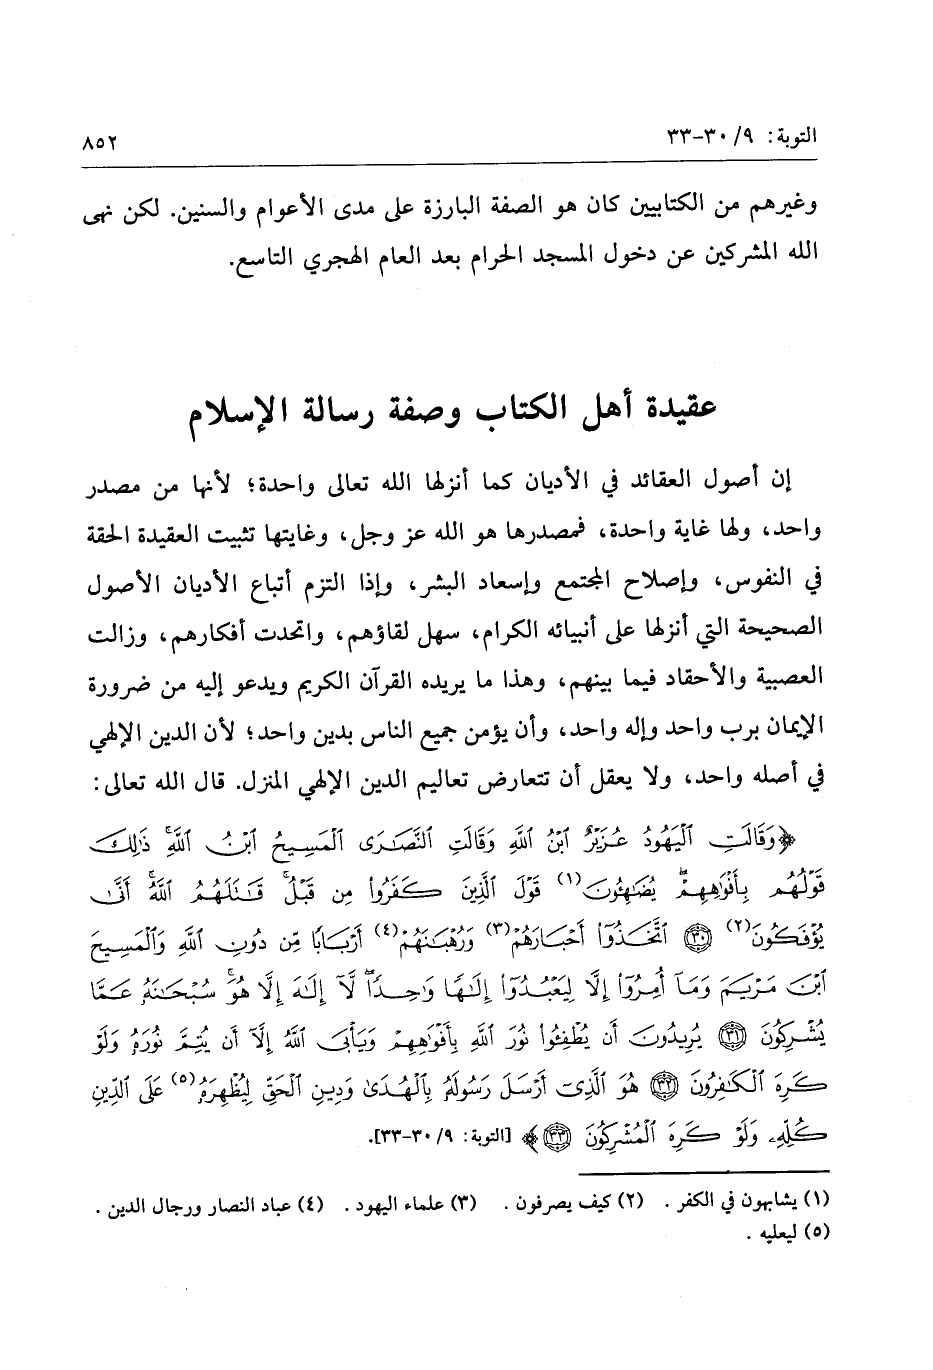 التوبة: ٩/ ٣٠-٣٣ ٨٥٢
وغيرهم من الكتابيين كان هو الصفة البارزة على مدى الأعوام والسنين. لكن نهى
الله المشركين عن دخول المسجد الحرام بعد العام الهجري التاسع.
عقيدة أهل الكتاب وصفة رسالة الإسلام
إن أصول العقائد في الأديان كما أنزلها الله تعالى واحدة؛ لأنها من مصدر
واحد، ولها غاية واحدة، فمصدرها هو الله عز وجل، وغايتها تثبيت العقيدة الحقة
في النفوس، وإصلاح المجتمع وإسعاد البشر، وإذا التزم أتباع الأديان الأصول
الصحيحة التي أنزلها على أنبيائه الكرام، سهل لقاؤهم، واتحدت أفكارهم، وزالت
العصبية والأحقاد فيما بينهم، وهذا ما يريده القرآن الكريم ويدعو إليه من ضرورة
الإيمان برب واحد وإله واحد، وأن يؤمن جميع الناس بدين واحد؛ لأن الدين الإلهي
في أصله واحد، ولا يعقل أن تتعارض تعاليم الدين الإلهي المنزل. قال الله تعالى:
﴿وَقَالَتِ ٱلْيَهُودُ عُزَيْرٌ ٱبْنُ ٱللَّهِ وَقَالَتِ ٱلنَّصَٰرَى ٱلْمَسِيحُ ٱبْنُ ٱللَّهِۖ ذَٰلِكَ
قَوْلُهُم بِأَفْوَٰهِهِمْۖ يُضَٰهِـُٔونَ(١) قَوْلَ ٱلَّذِينَ كَفَرُوا۟ مِن قَبْلُۚ قَٰتَلَهُمُ ٱللَّهُۚ أَنَّىٰ
يُؤْفَكُونَ(٢) ٣٠ ٱتَّخَذُوٓا۟ أَحْبَارَهُمْ(٣) وَرُهْبَٰنَهُمْ(٤) أَرْبَابًا مِّن دُونِ ٱللَّهِ وَٱلْمَسِيحَ
ٱبْنَ مَرْيَمَ وَمَآ أُمِرُوٓا۟ إِلَّا لِيَعْبُدُوٓا۟ إِلَٰهًا وَٰحِدًاۖ لَّآ إِلَٰهَ إِلَّا هُوَۚ سُبْحَٰنَهُۥ عَمَّا
يُشْرِكُونَ ٣١ يُرِيدُونَ أَن يُطْفِـُٔوا۟ نُورَ ٱللَّهِ بِأَفْوَٰهِهِمْ وَيَأْبَى ٱللَّهُ إِلَّآ أَن يُتِمَّ نُورَهُۥ وَلَوْ
كَرِهَ ٱلْكَٰفِرُونَ ٣٢ هُوَ ٱلَّذِىٓ أَرْسَلَ رَسُولَهُۥ بِٱلْهُدَىٰ وَدِينِ ٱلْحَقِّ لِيُظْهِرَهُۥ(٥) عَلَى ٱلدِّينِ
كُلِّهِۦ وَلَوْ كَرِهَ ٱلْمُشْرِكُونَ ٣٣﴾ [التوبة: ٩/ ٣٠-٣٣].
(١) يشابهون في الكفر . (٢) كيف يصرفون . (٣) علماء اليهود . (٤) عباد النصار ورجال الدين .
(٥) ليعليه .